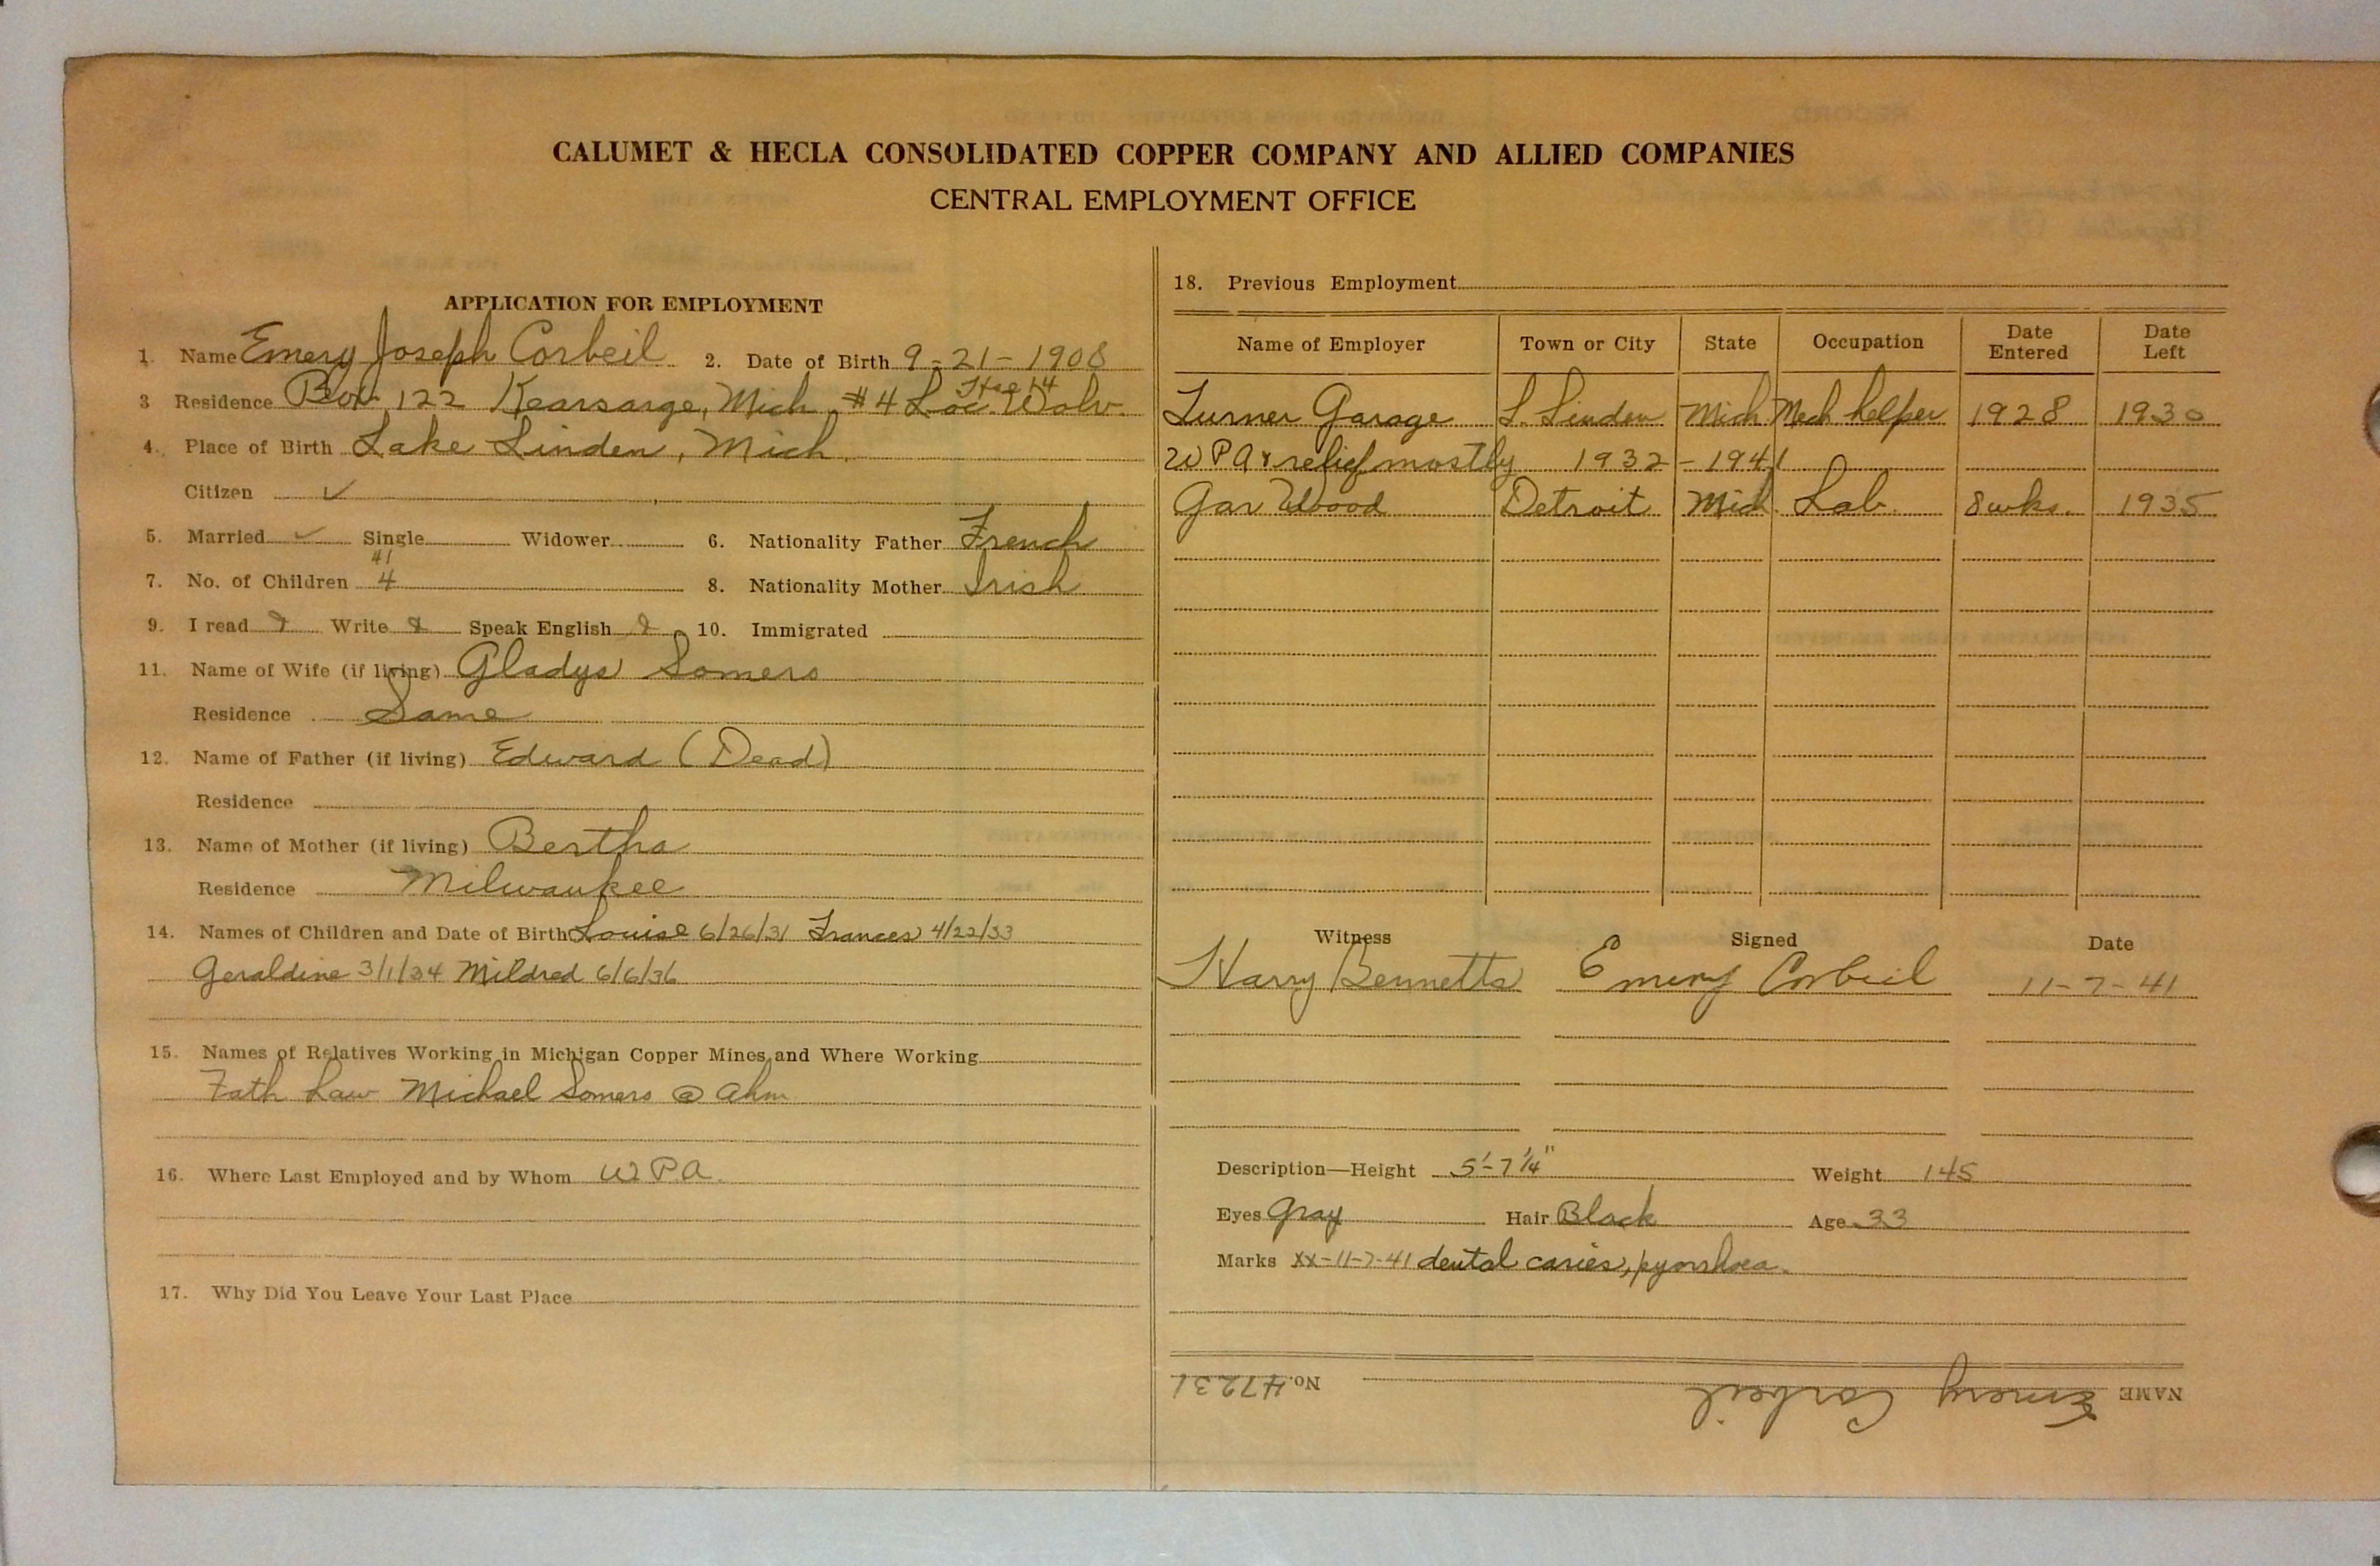 CALUMET & HECLA CONSOLIDATED COPPER COMPANY AND ALLIED COMPANIES
CENTRAL EMPLOYMENT OFFICE
APPLICATION FOR EMPLOYMENT
1. Name Emery Joseph Corbeil 2. Date of Birth 9-21-1908
Hse 14
3 Residence Box 122 Kearsarge, Mich #4 Loc. Wolv.
4. Place of Birth Lake Linden, Mich.
Citizen ✓
5. Married ✓ Single Widower 6. Nationality Father French
41
7. No. of Children 4 8. Nationality Mother Irish
9. I read Write Speak English 10. Immigrated
11. Name of Wife (if living) Gladys Somers
Residence Same
12. Name of Father (if living) Edward (Dead)
Residence
13. Name of Mother (if living) Bertha
Residence Milwaukee
14. Names of Children and Date of Birth Louise 6/26/31 Frances 4/22/33
Geraldine 3/1/34 Mildred 6/6/36
15. Names of Relatives Working in Michigan Copper Mines and Where Working
Fath Law Michael Somers @ Ahm
16. Where Last Employed and by Whom W P.A.
17. Why Did You Leave Your Last Place
18. Previous Employment
Name of Employer Town or City State Occupation Date Entered Date Left
Turner Garage L. Linden Mich Mech helper 1928 1930
WPA & relief mostly 1932 - 1941
Gar Wood Detroit Mich. Lab. 8 wks. 1935
Witness Signed Date
Harry Bennetts Emery Corbeil 11-7-41
Description—Height 5'-7 1/4" Weight 145
Eyes Gray Hair Black Age 33
Marks xx-11-7-41 dental caries, pyorrhoea.
NAME Emery Corbeil No. 47231